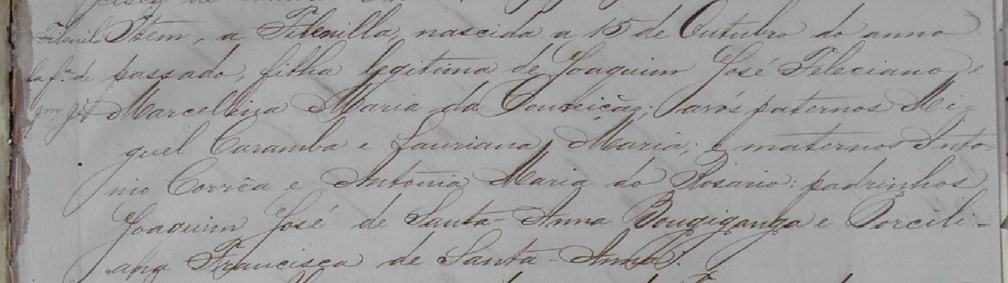 Item, a Filenilla, nascida a 15 de Outubro do anno
passado, filha legitima de Joaquim José Feleciano, e
Marcellina Maria da Conceição; avós paternos Mi-
guel Caramba e Lauriana Maria; e maternos Anto-
nio Corrêa e Antonia Maria do Rosario: padrinhos
Joaquim José de Santa-Anna Bougiganga e Porcili-
ana Francisca de Santa-Anna.